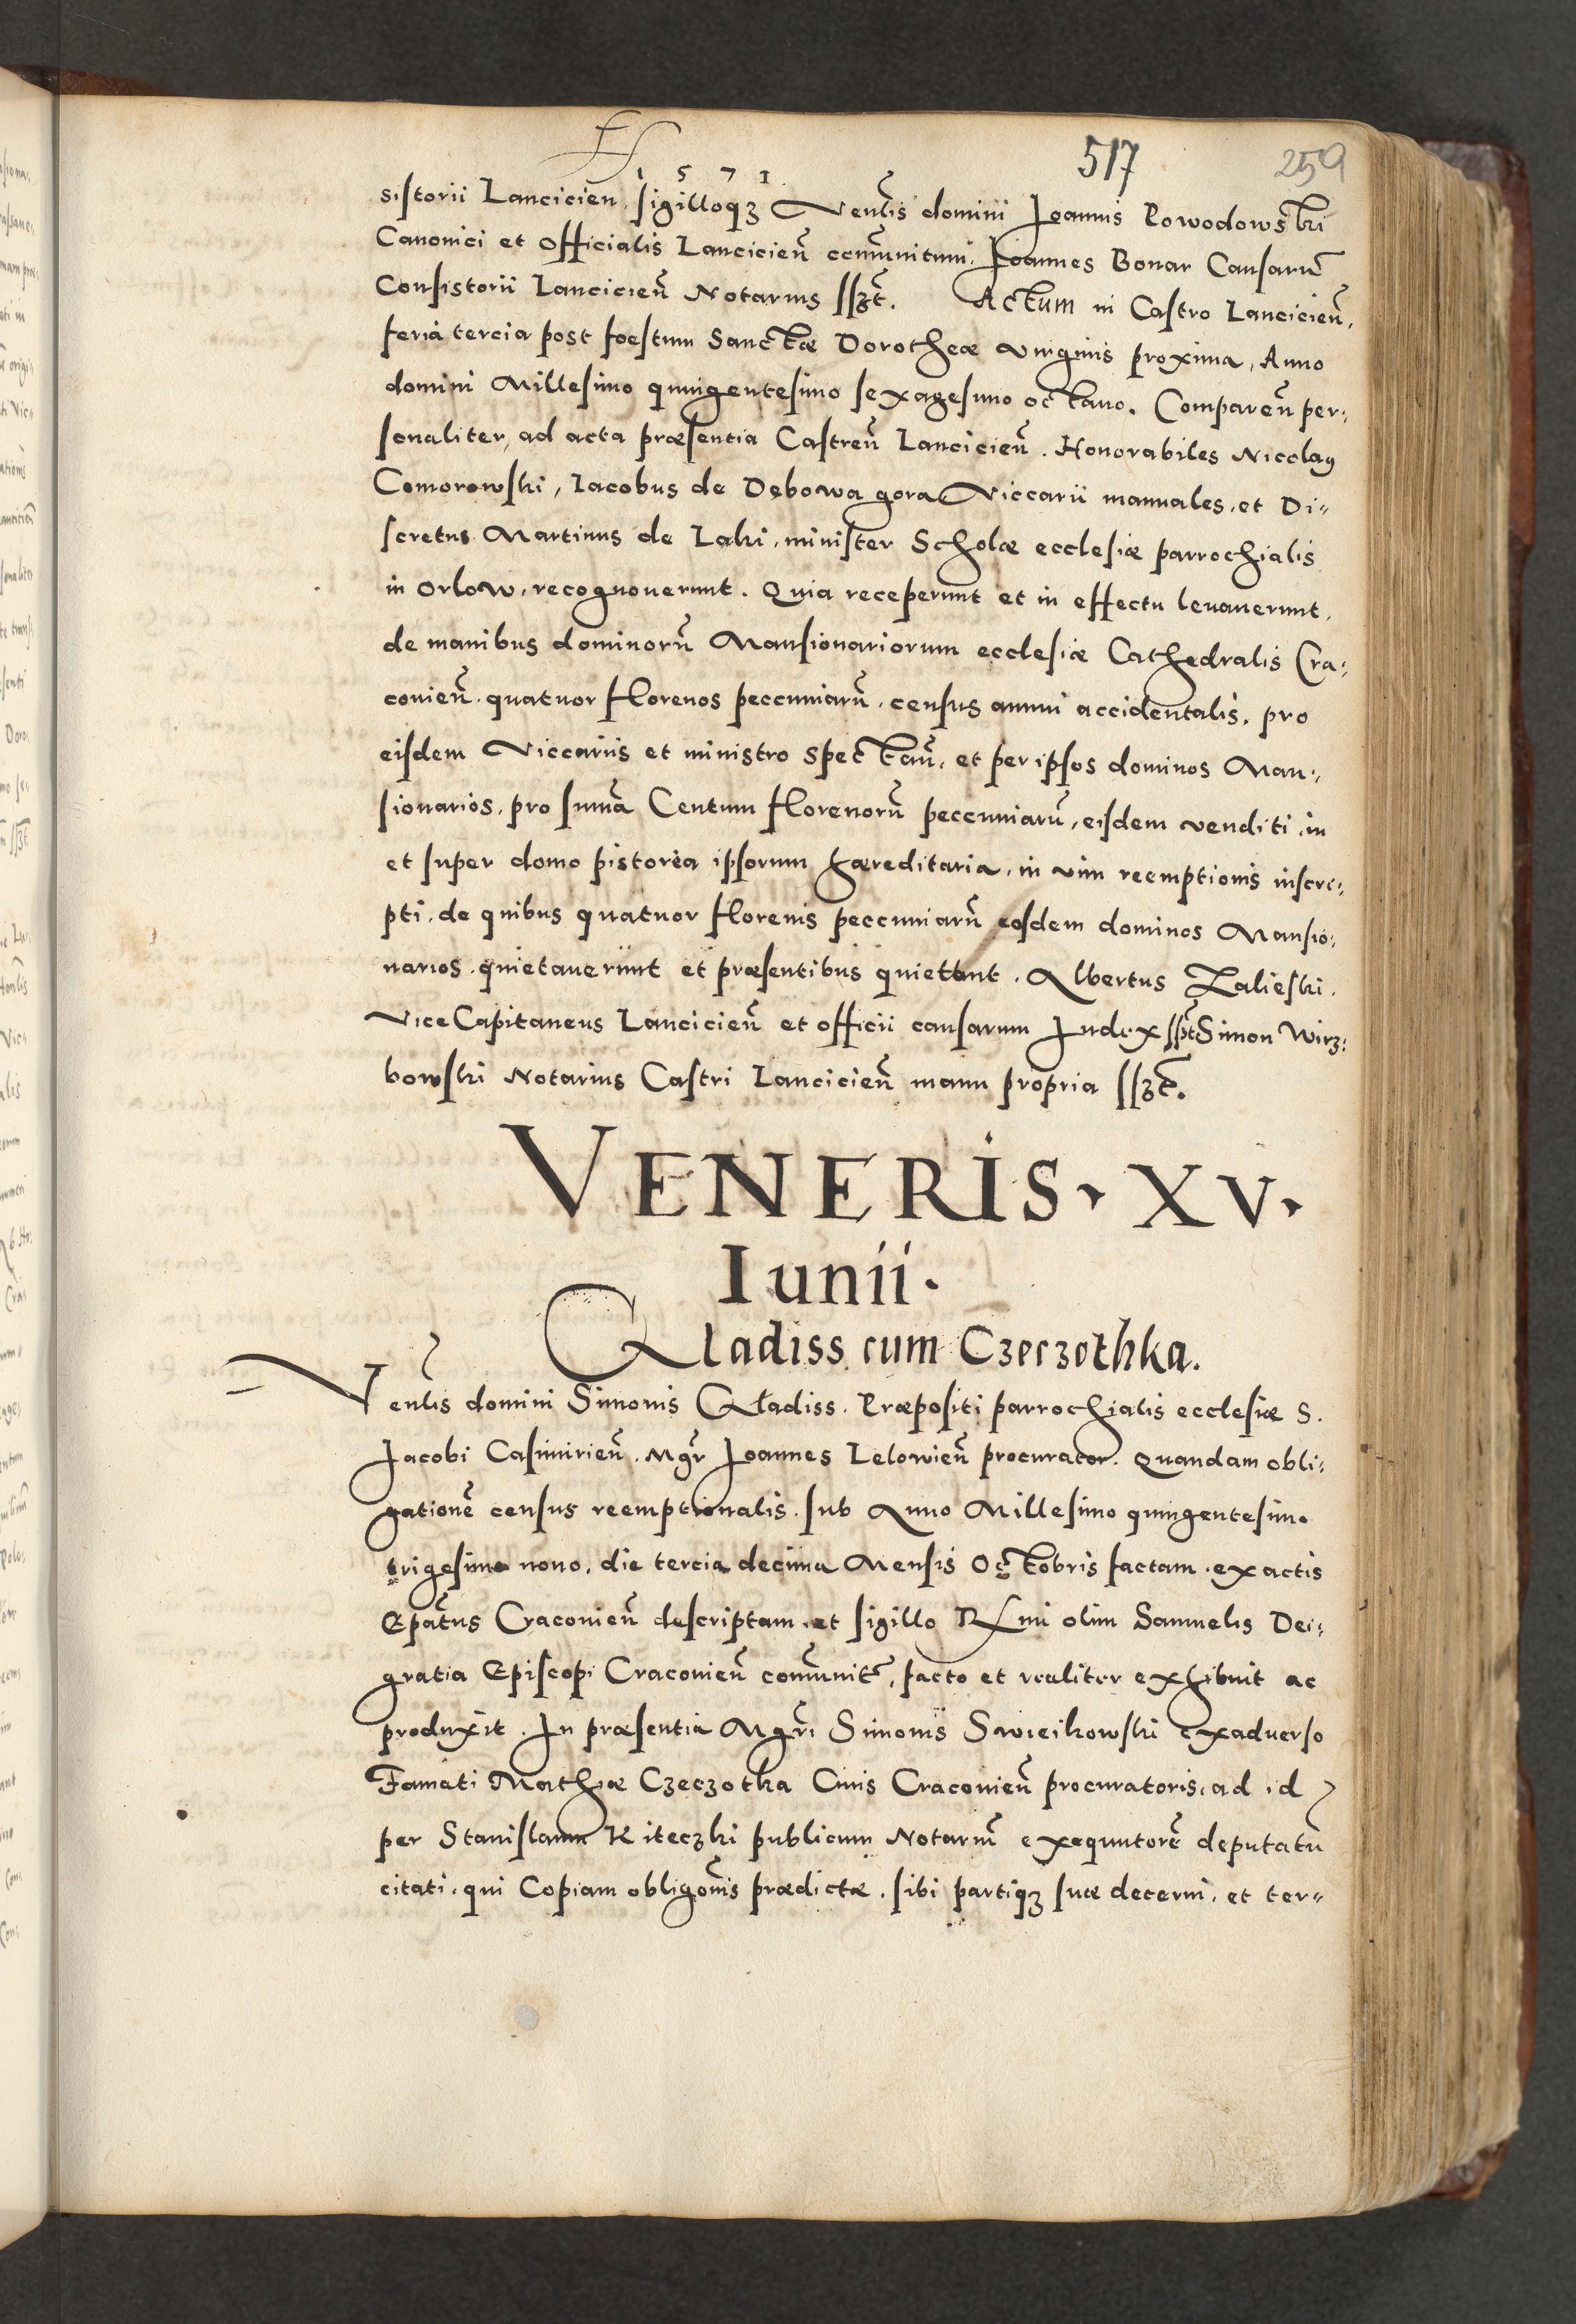 517 259
1 5 7 1
sistorii Lancicien̄. sigilloqʒ Venlis domini Joannis Powodowski
Canonici et Officialis Lancicien̄ com̄unitum. Joannes Bonar Causarū
Consistorii Lancicien̄ Notarius sszt. Actum in Castro Lancicien̄,
feria tercia post foestum Sanctæ Dorotheæ virginis proxima, Anno
domini Millesimo quingentesimo sexagesimo octauo. Comparen̄ per,
sonaliter, ad acta præsentia Castren̄ Lancicien̄. Honorabiles Nicolaꝰ
Comorowski, Iacobus de Dębowa gora Viccarii manuales, et Di„
scretus Martinus de Laki, minister Scholæ ecclesiæ parrochialis
in Orlow, recognouerunt. Quia receperunt et in effectu leuauerunt,
de manibus dominorū Mansionariorum ecclesiæ Cathedralis Cra,
couien̄. quatuor florenos peccuniarū, census annui accidentalis, pro
eisdem Viccariis et ministro spectan̄, et per ipsos dominos Man,
sionarios, pro sum̄a Centum florenorū peccuniarū, eisdem venditi, in
et super domo pistorea ipsorum hæreditaria, in vim reemptionis inscri,
pti, de quibus quatuor florenis peccuniarū eosdem dominos Mansio,
narios. quietauerunt et præsentibus quiettant. Albertus Zalieski.
ViceCapitaneus Lancicien̄ et officii causarum Judex sspt Simon Wirz,
bowski Notarius Castri Lancicien̄ manu propria sszt.
VENERIS. XV.
Iunii.
Qladiss cum Czeczothka.
Venlis domini Simonis Qladiss. Præpositi parrochialis ecclesiæ S.
Jacobi Casimirien̄. Mgr̄ Joannes Lelowien̄ procurator. Quandam obli,
gationē census reemptionalis. sub Anno Millesimo quingentesimo
trigesimo nono, die tercia decima Mensis Octobris factam. ex actis
Ep̄atus Cracouien̄ descriptam. et sigillo Rmi olim Samuelis Dei,
gratia Episcopi Cracouien̄ com̄unitā, facto et realiter exhibuit ac
produxit. In præsentia Mgri Simonis Swieikowski exaduerso
Famati Mathiæ Czeczotka Ciuis Cracouien̄ procuratoris, ad id
per Stanislaum Kiteczki publicum Notariū exequutorē deputatū
citati. qui Copiam obligōnis prædictæ. sibi partiqʒ suæ decerni, et ter„